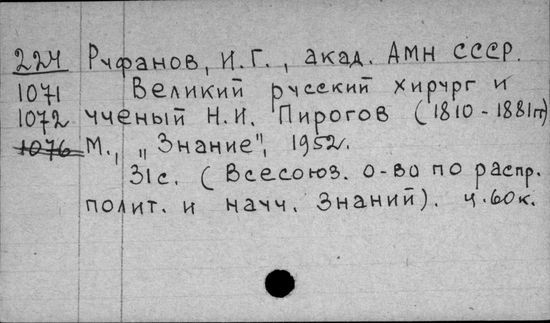 224 Руфанов, И.Г., акад. АМН СССР.
1071 Великий русский хирург и
1072 ученый Н.И. Пирогов (1810-1881гг)
1076 М., „Знание", 1952.
31с. (Всесоюз. о-во по распр.
полит. и науч. Знаний). ц.60к.